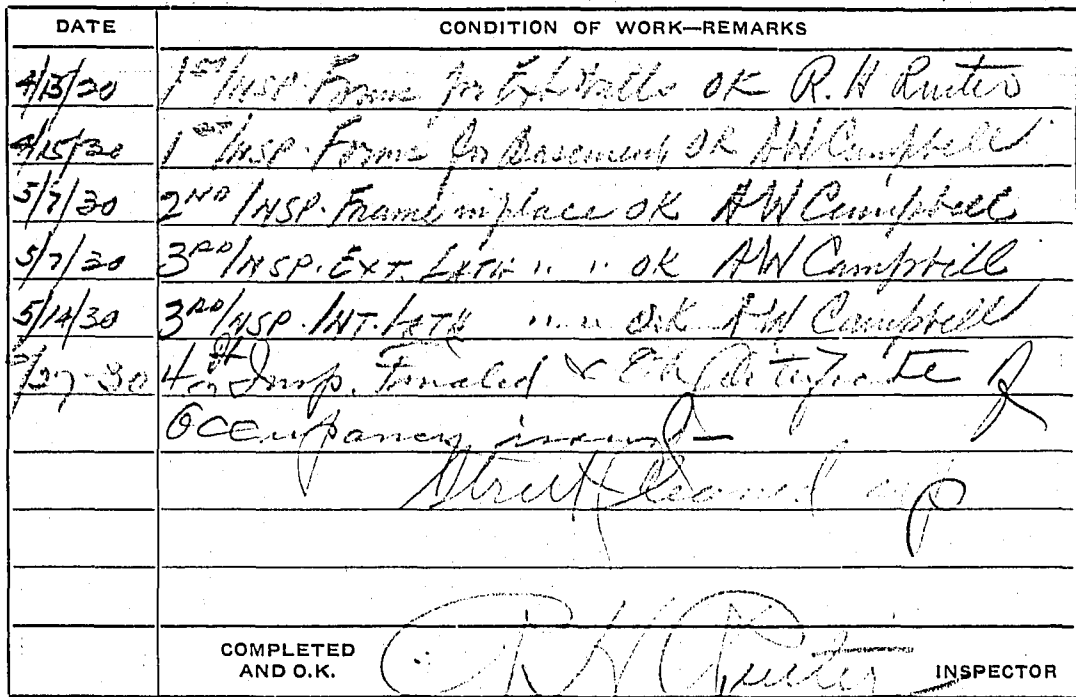 DATE CONDITION OF WORK—REMARKS
4/13/30 1st INSP. Forms for Ext Walls OK R. H Ruiter
4/15/30 1st INSP. Forms for Basement OK AW Campbell
5/7/30 2ND INSP. Frame in place OK AW Campbell
5/7/30 3RD INSP. EXT. LATH " " OK AW Campbell
5/14/30 3RD INSP. INT. LATH " " OK AW Campbell
27-30 4th Insp. Finaled & Certificate of
Occupancy issued
Street Cleaned up
COMPLETED
AND O.K. R H Ruiter INSPECTOR